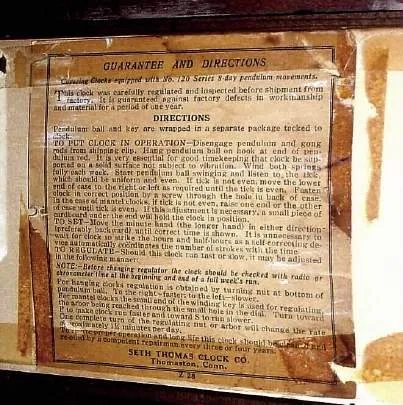 GUARANTEE AND DIRECTIONS
Covering Clocks equipped with No. 120 Series 8-day pendulum movements.
This clock was carefully regulated and inspected before shipment from
factory. It is guaranteed against factory defects in workmanship
and material for a period of one year.
DIRECTIONS
Pendulum ball and key are wrapped in a separate package tacked to
clock.
TO PUT CLOCK IN OPERATION—Disengage pendulum and gong
rods from shipping clip. Hang pendulum ball on hook at end of pen-
dulum rod. It is very essential for good timekeeping that clock be sup-
ported on a solid surface not subject to vibration. Wind both springs
fully each week. Start pendulum ball swinging and listen to the tick
which should be uniform and even. If tick is not even, move the lower
end of case to the right or left as required until the tick is even. Fasten
clock in correct position by a screw through the hole in back of case.
In the case of mantel clocks, if tick is not even, raise one end or the other
of case until tick is even. If this adjustment is necessary, a small piece of
cardboard under the end will hold the clock in position.
TO SET—Move the minute hand (the longer hand) in either direction
(preferably backward) until correct time is shown. It is unnecessary to
wait for clock to strike the hours and half-hours as a self-correcting de-
vice automatically coordinates the number of strokes with the time.
TO REGULATE—Should this clock run fast or slow, it may be adjusted
in the following manner.
NOTE—Before changing regulator the clock should be checked with radio or
chronometer line at the beginning and end of a full week's run.
For hanging clocks regulation is obtained by turning nut at bottom of
pendulum ball. To the right—faster; to the left—slower.
For mantel clocks the small end of the winding key is used for regulating,
the arbor being reached through the small hole in the dial. Turn toward
F to make clock run faster and toward S to run slower.
One complete turn of the regulating nut or arbor will change the rate
approximately 1½ minutes per day.
operation and long life this clock should be
re-oiled by a competent repairman every three or four years.
SETH THOMAS CLOCK CO.
Thomaston, Conn.
Z 28